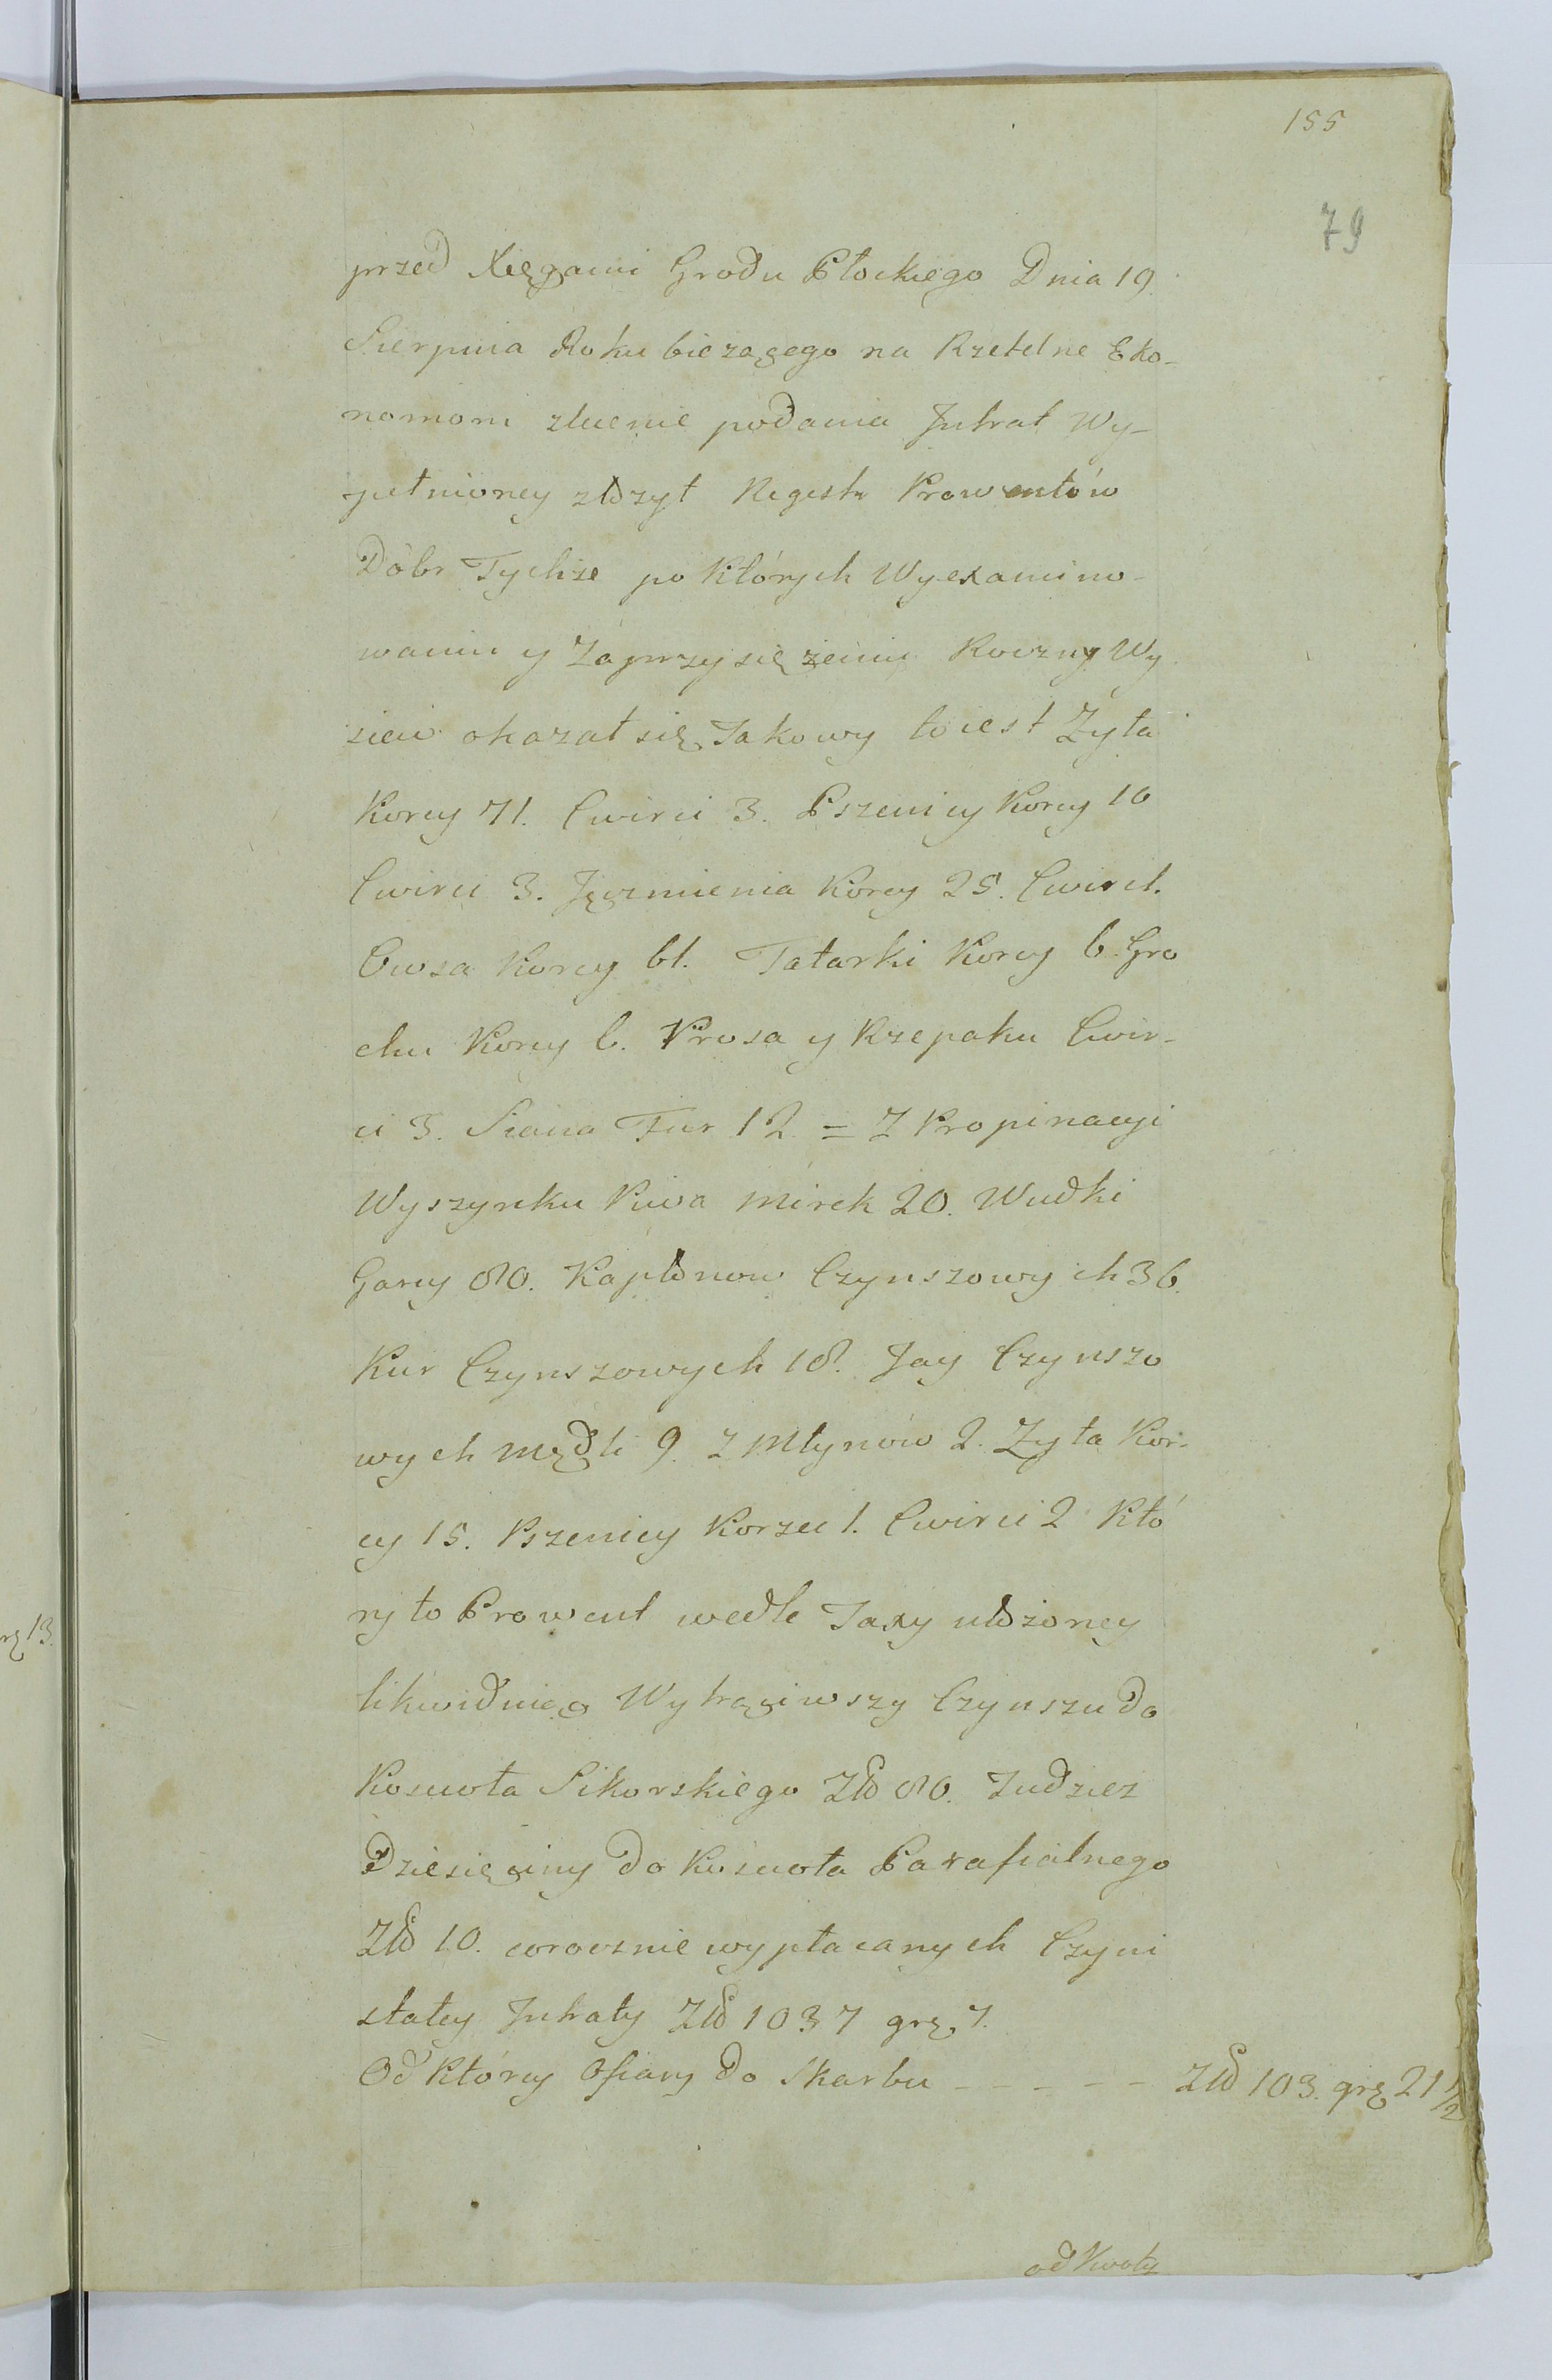 155
79
przed Xięgami Grodu Płockiego Dnia 19.
Sierpnia Roku bieżącego na Rzetelne Eko-
nomom zlecenie podania Jntrat Wy-
pełnioney złożył Regestr Prowentów
Dóbr Tychże po których Wyexamino-
waniu y Zaprzysiężeniu Roczny Wy
siew okazał się Takowy to iest Zyta
Korcy 71. Cwierci 3. Pszenicy Korcy 10
Cwierci 3. Jęczmienia Korcy 25. Cwierć 1.
Owsa Korcy 61. Tatarki Korcy 6. Gro
chu Korcy 6. Prosa y Rzepaku Cwier-
ci 3. Siana Fur 12. = Z Propinacyi
Wyszynku Piwa mirek 20. Wudki
Garcy 80. Kapłonow Czynszowych 36.
Kur Czynszowych 18. Jay Czynszo
wych mędli 9. Z Młynów 2. Zyta Kor-
cy 15. Pszenicy Korzec 1. Cwierci 2 Któ
ry to Prowent wedle Taxy ułożoney
likwiduiąc Wytrąciwszy Czynszu do
Kościoła Sikorskiego Złł 80. Tudzież
Dziesięciny do Kościoła Parafialnego
Złł 10. corocznie wypłacanych Czyni
stałey Jntraty Złł 1037 grę 7.
Od Którey Ofiary do Skarbu - - - - - Złł 103. grę 21 1/2
od Kwoty
rę 13.